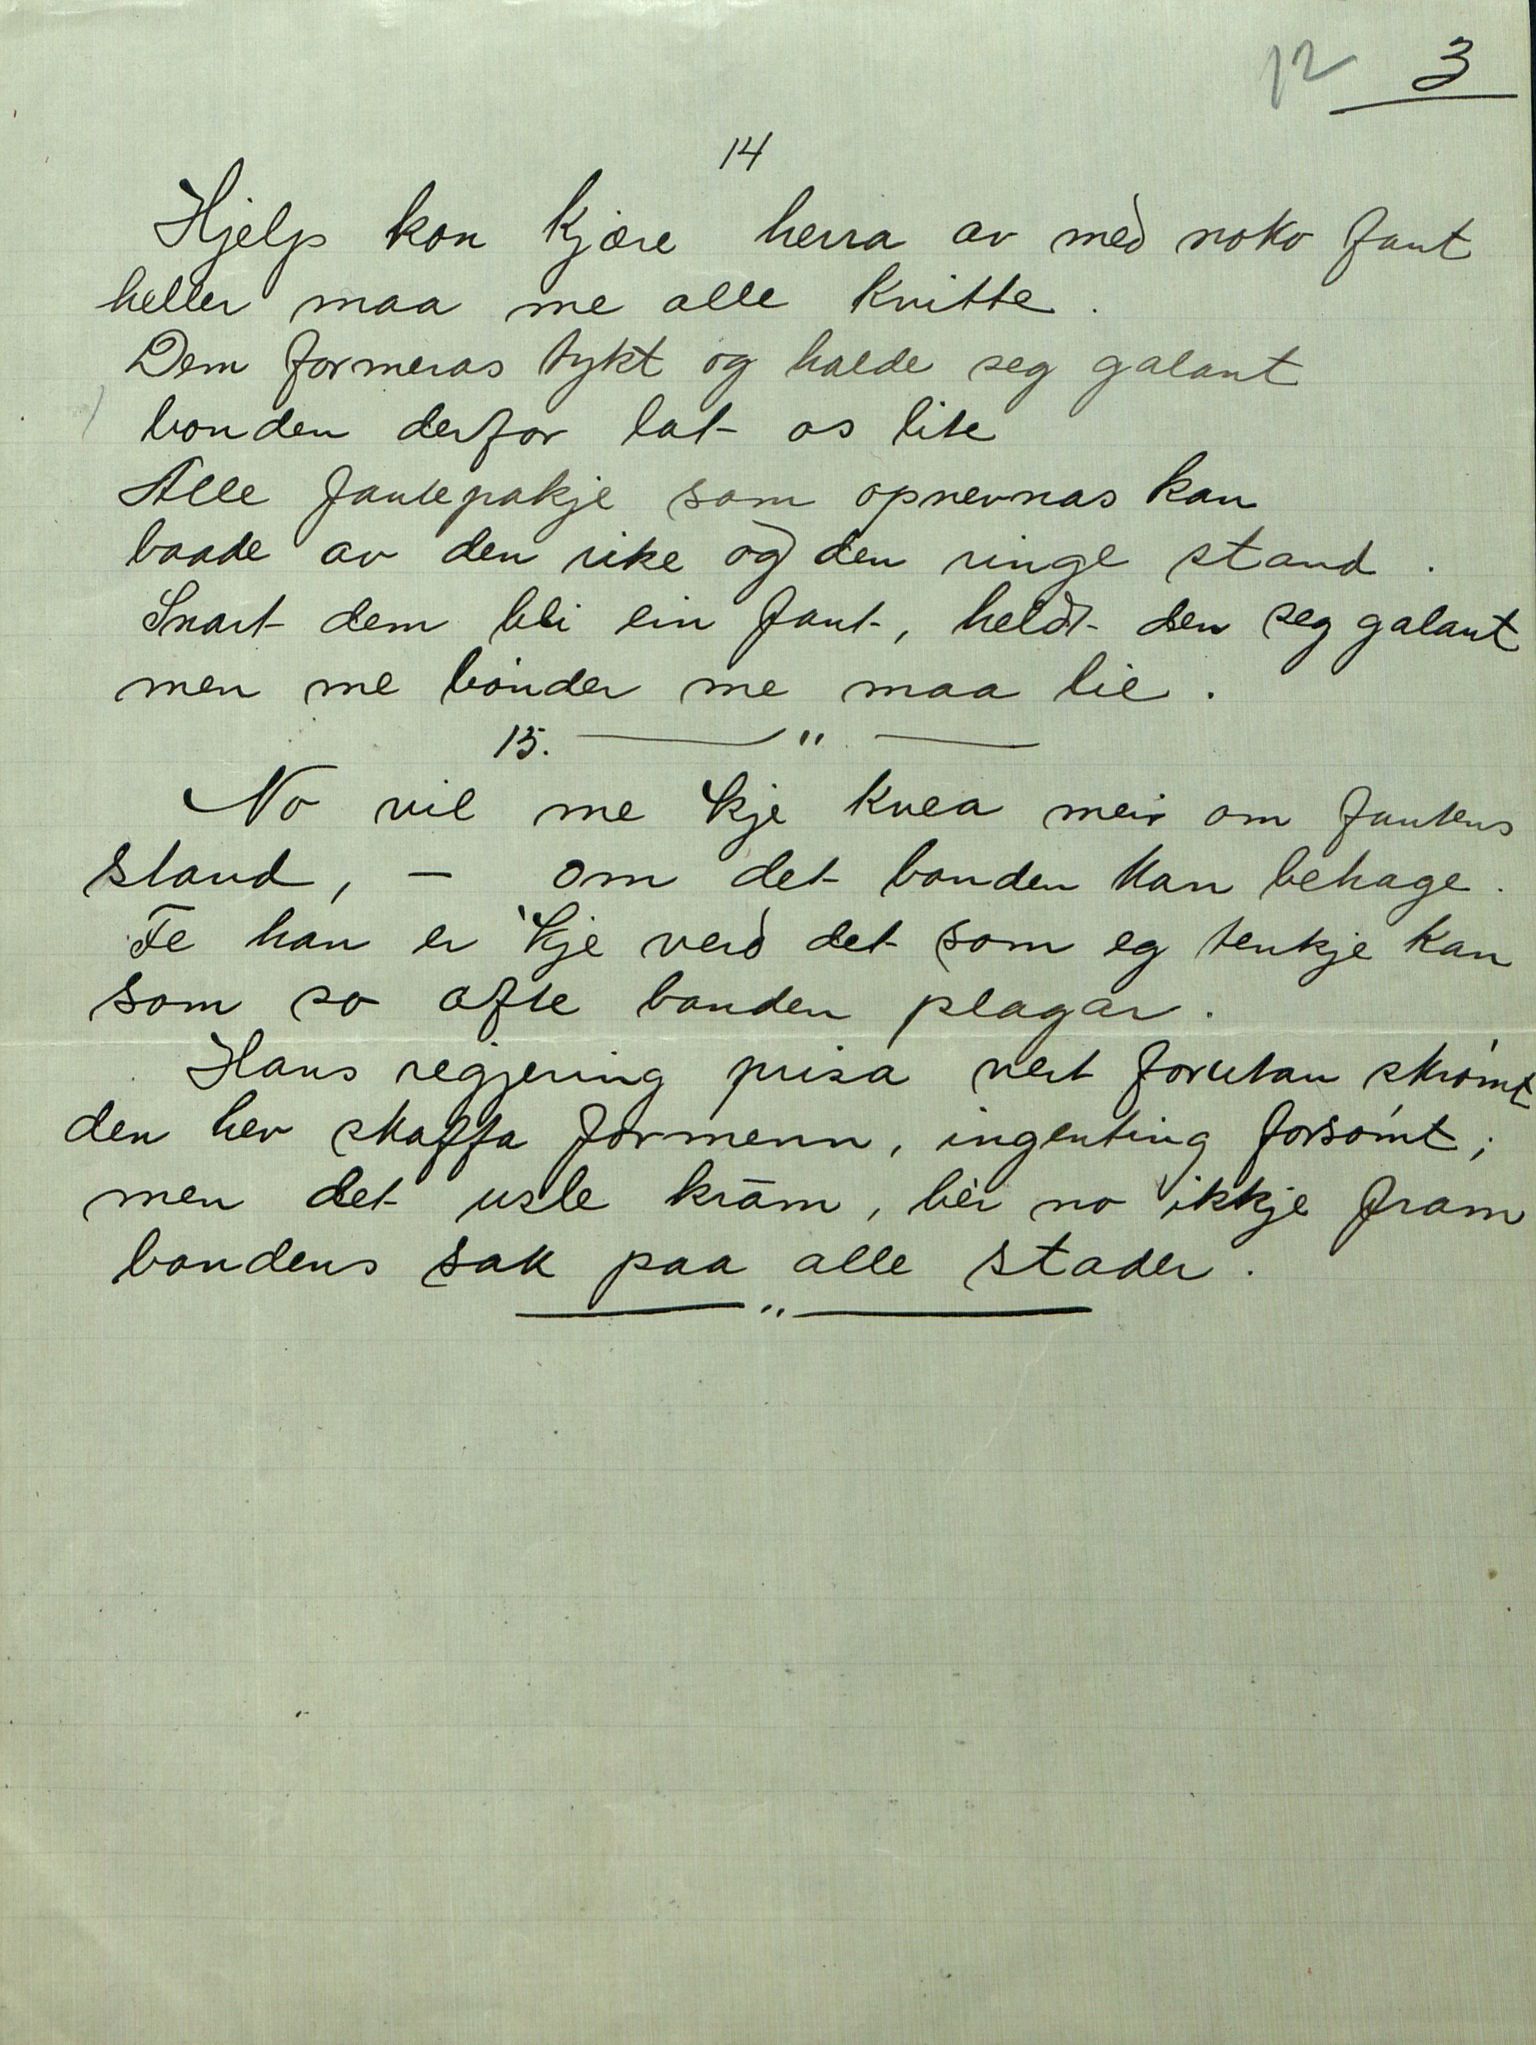 12 3
14
Hjelp kon kjære herra av med noko fant
heller maa me alle kvitte.
Dem formeras tykt og halde seg galant
bonden derfor lat os lite
Alle fantepakje som opnevnas kan
baade av den rike og den ringe stand.
Snart dem bli ein fant, heldt den seg galant
men me bönder me maa lie.
15. — " —
No vil me 'kje kvea meir om fantens
stand, – om det bonden kan behage.
Te han er 'kje verd det som eg tenkje kan
som so ofte bonden plagar.
Hans regjering prisa vert forutan skrömt
den hev skaffa formenn, ingenting forsömt;
men det usle kram, bèr no ikkje fram
bondens sak paa alle stader.
— " —